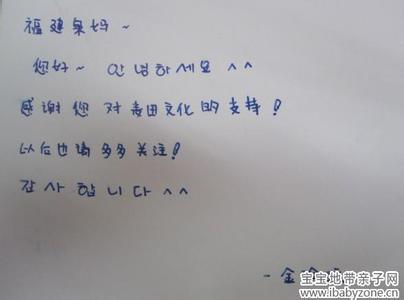 福建泉妈~
您好~ 안녕하세요 ^^
感谢您对麦田文化的支持!
以后也请多多关注!
감사합니다 ^^
- 金
宝宝地带亲子网
www.ibabyzone.cn